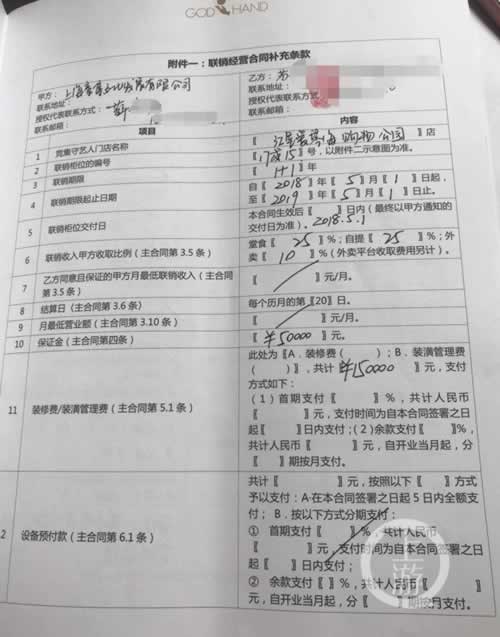 GOD HAND
附件一：联销经营合同补充条款
甲方：上海 有限公司
联系地址：
授权代表联系方式：
联系邮箱：
乙方：
联系地址：
授权代表联系方式：
联系邮箱：
项目
内容
1 觅集守艺人门店名称
【江星爱琴海购物公园】店
2 联销柜位的编号
15】号，以附件二示意图为准。
3 联销期限
【1+1】年
4 联销期限起止日期
自【2018】年【5】月【1】日起，
至【2019】年【5】月【1】日止。
5 联销柜位交付日
本合同生效后【 】日内（最终以甲方通知的
交付日为准）。2018.5.1
6 联销收入甲方收取比例（主合同第 3.5 条）
堂食【25】%；自提【25】%；外
卖【10】%（外卖平台收取费用另计）。
7 乙方同意且保证的甲方月最低联销收入（主合同
第 3.5 条）
【 】元/月。
8 结算日（主合同第 3.6 条）
每个历月的第【20】日。
9 月最低营业额（主合同第 3.10 条）
【 】元/月。
10 保证金（主合同第四条）
【¥50000】元。
11 装修费/装潢管理费（主合同第 5.1 条）
此处为【A．装修费（ ）；B．装潢管理费
（ ）】，共计【¥150000】元，支付
方式如下：
（1）首期支付【 】%，共计人民币
【 】元，支付时间为自本合同签署之日
起【 】日内支付；（2）余款支付【 】%，
共计人民币【 】元，自开业当月起，分
【 】期按月支付。
2 设备预付款（主合同第 6.1 条）
共计【 】元，按照以下【 】方式
予以支付：A·在本合同签署之日起 5 日内全额支
付； B．按以下方式分期支付：
① 首期支付【 】%，共计人民币
【 】元，支付时间为自本合同签署之日
起【 】日内支付；
② 余款支付【 】%，共计人民币【 】
元，自开业当月起，分【 】期按月支付。
上游